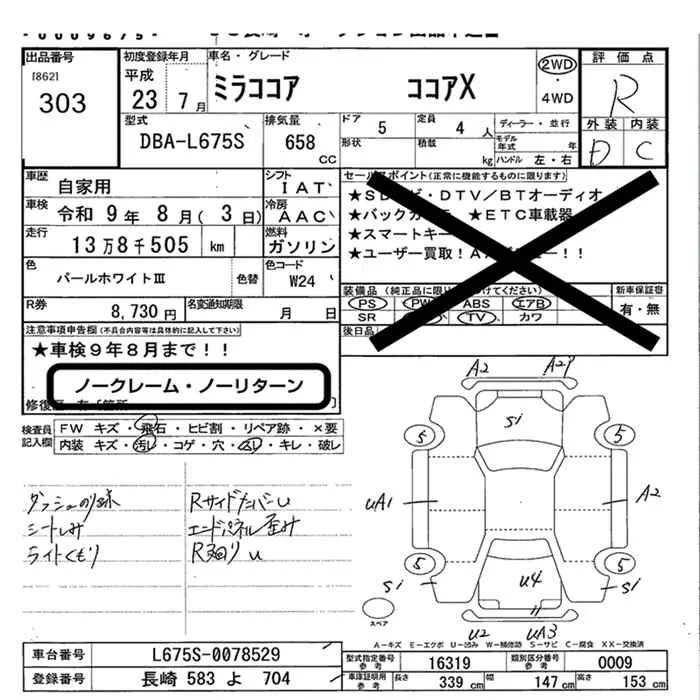 出品番号
[862]
303
初度登録年月
平成
23 7月
車名・グレード
ミラココア ココアX
2WD
・
4WD
評価点
R
外装 内装
D C
型式
DBA-L675S
排気量
658
CC
ドア
5
定員
4 人
ディーラー・並行
形状
積載
kg
モデル
年式 年
ハンドル 左・右
車歴
自家用
シフト
IAT
車検
令和 9年 8月( 3日)
冷房
AAC
走行
13万8千505 km
燃料
ガソリン
色
パールホワイトⅢ
色替
色コード
W24
R券
8,730 円
名変通知期限
月 日
セールスポイント(正常に機能するものに限ります)
・DTV/BTオーディオ
★バックカ ★ETC車載器
★スマートキー
★ユーザー買取!
装備品 (純正品に限り てください)
PS PW ABS エアB
SR TV カワ
後日品
新車保証書
有・無
注意事項申告欄(不具合内容等は具体的に記入して下さい)
★車検9年8月まで!!
ノークレーム・ノーリターン
検査員
記入欄
FW キズ・飛石・ヒビ割・リペア跡・×要
内装 キズ・汚レ・コゲ・穴・ ・キレ・破レ
シートしみ
ライトくもり
エンドパネル歪み
A2
Si
5
5
UA1
A2
5
5
Si
Si
U4
U2
UA3
スペア
A-キズ E-エクボ U-凹み W-補修跡 S-サビ C-腐食 XX-交換済
車台番号
L675S-0078529
登録番号
長崎 583 よ 704
型式指定番号
参考
16319
類別区分番号
参考
0009
車庫証明用
参考
長さ
339 cm
幅
147 cm
高さ
153 cm